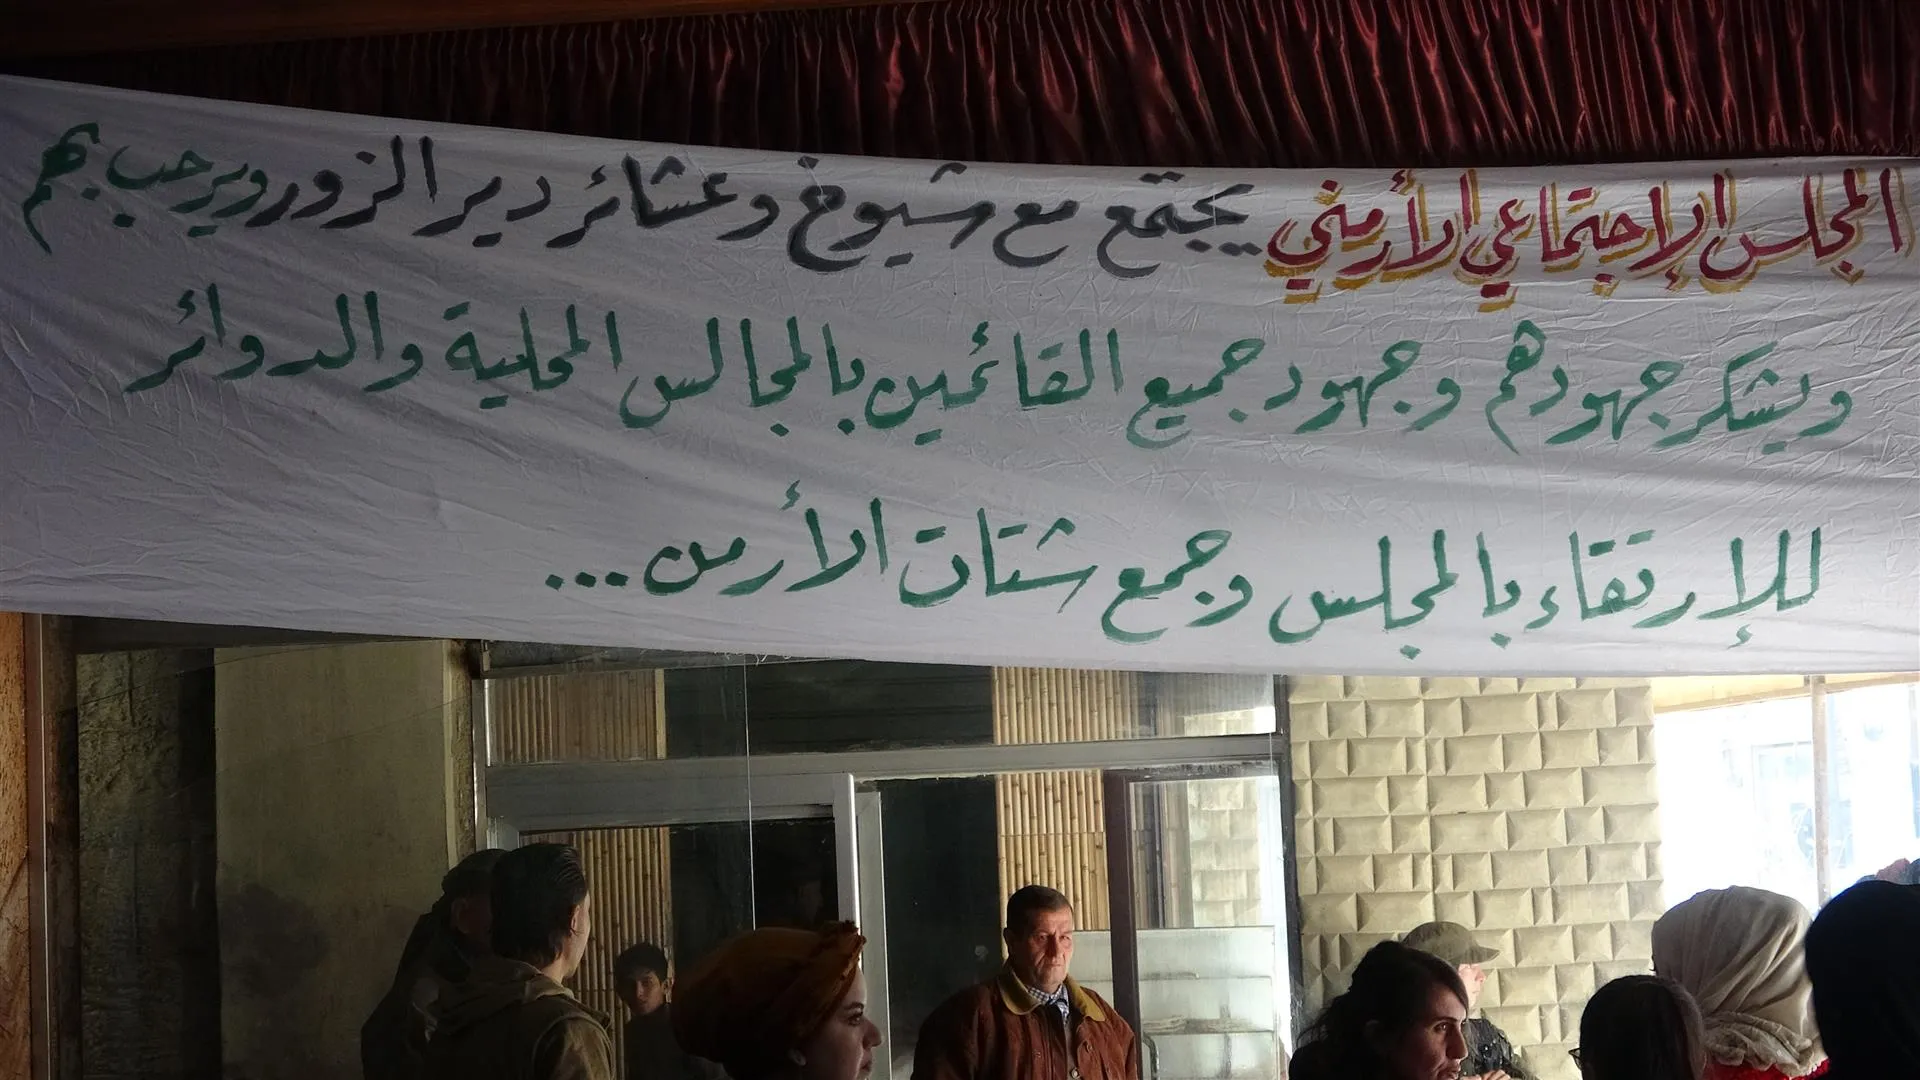 المجلس الإجتماعي الأرمني يجتمع مع شيوخ وعشائر دير الزور ويرحب بهم
ويشكر جهودهم وجهود جميع القائمين بالمجالس المحلية والدوائر
للإرتقاء بالمجلس وجمع شتات الأرمن...